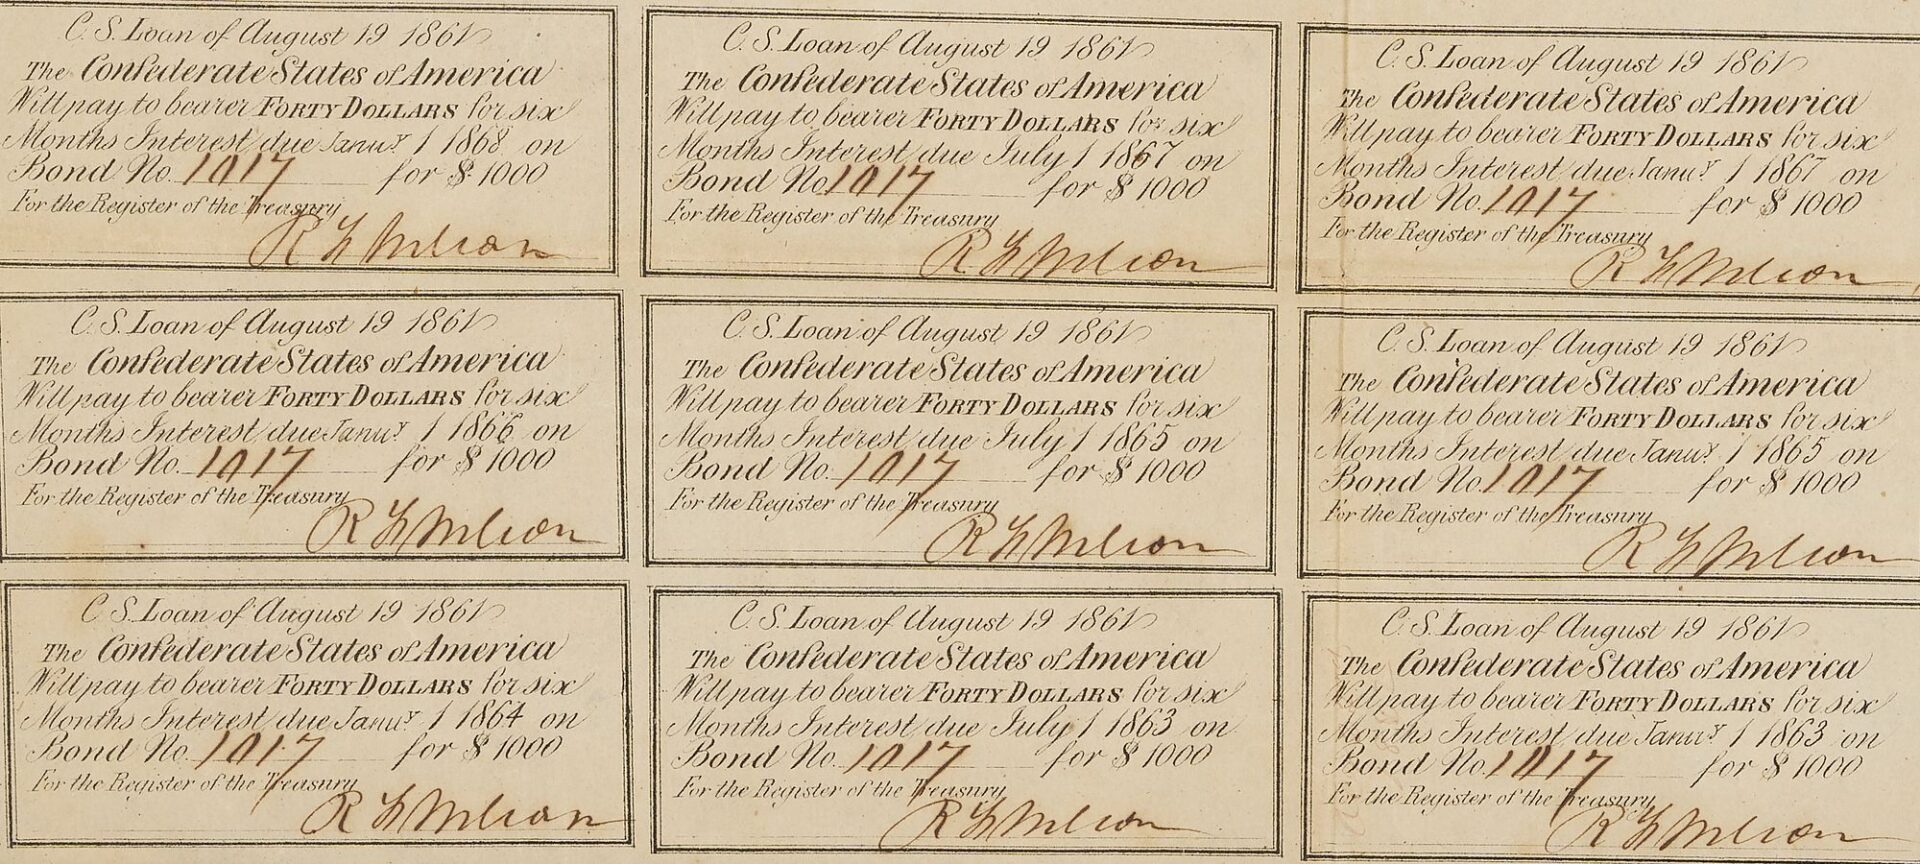 C. S. Loan of August 19 1861
The Confederate States of America
Will pay to bearer FORTY DOLLARS for six
Months Interest due Janu.y 1 1868 on
Bond No. 1017 for $ 1000
For the Register of the Treasury
C. S. Loan of August 19 1861
The Confederate States of America
Will pay to bearer FORTY DOLLARS for six
Months Interest due July 1 1867 on
Bond No. 1017 for $ 1000
For the Register of the Treasury
C. S. Loan of August 19 1861
The Confederate States of America
Will pay to bearer FORTY DOLLARS for six
Months Interest due Janu.y 1 1867 on
Bond No. 1017 for $ 1000
For the Register of the Treasury
C. S. Loan of August 19 1861
The Confederate States of America
Will pay to bearer FORTY DOLLARS for six
Months Interest due Janu.y 1 1866 on
Bond No. 1017 for $ 1000
For the Register of the Treasury
C. S. Loan of August 19 1861
The Confederate States of America
Will pay to bearer FORTY DOLLARS for six
Months Interest due July 1 1865 on
Bond No. 1017 for $ 1000
For the Register of the Treasury
C. S. Loan of August 19 1861
The Confederate States of America
Will pay to bearer FORTY DOLLARS for six
Months Interest due Janu.y 1 1865 on
Bond No. 1017 for $ 1000
For the Register of the Treasury
C. S. Loan of August 19 1861
The Confederate States of America
Will pay to bearer FORTY DOLLARS for six
Months Interest due Janu.y 1 1864 on
Bond No. 1017 for $ 1000
For the Register of the Treasury
C. S. Loan of August 19 1861
The Confederate States of America
Will pay to bearer FORTY DOLLARS for six
Months Interest due July 1 1863 on
Bond No. 1017 for $ 1000
For the Register of the Treasury
C. S. Loan of August 19 1861
The Confederate States of America
Will pay to bearer FORTY DOLLARS for six
Months Interest due Janu.y 1 1863 on
Bond No. 1017 for $ 1000
For the Register of the Treasury